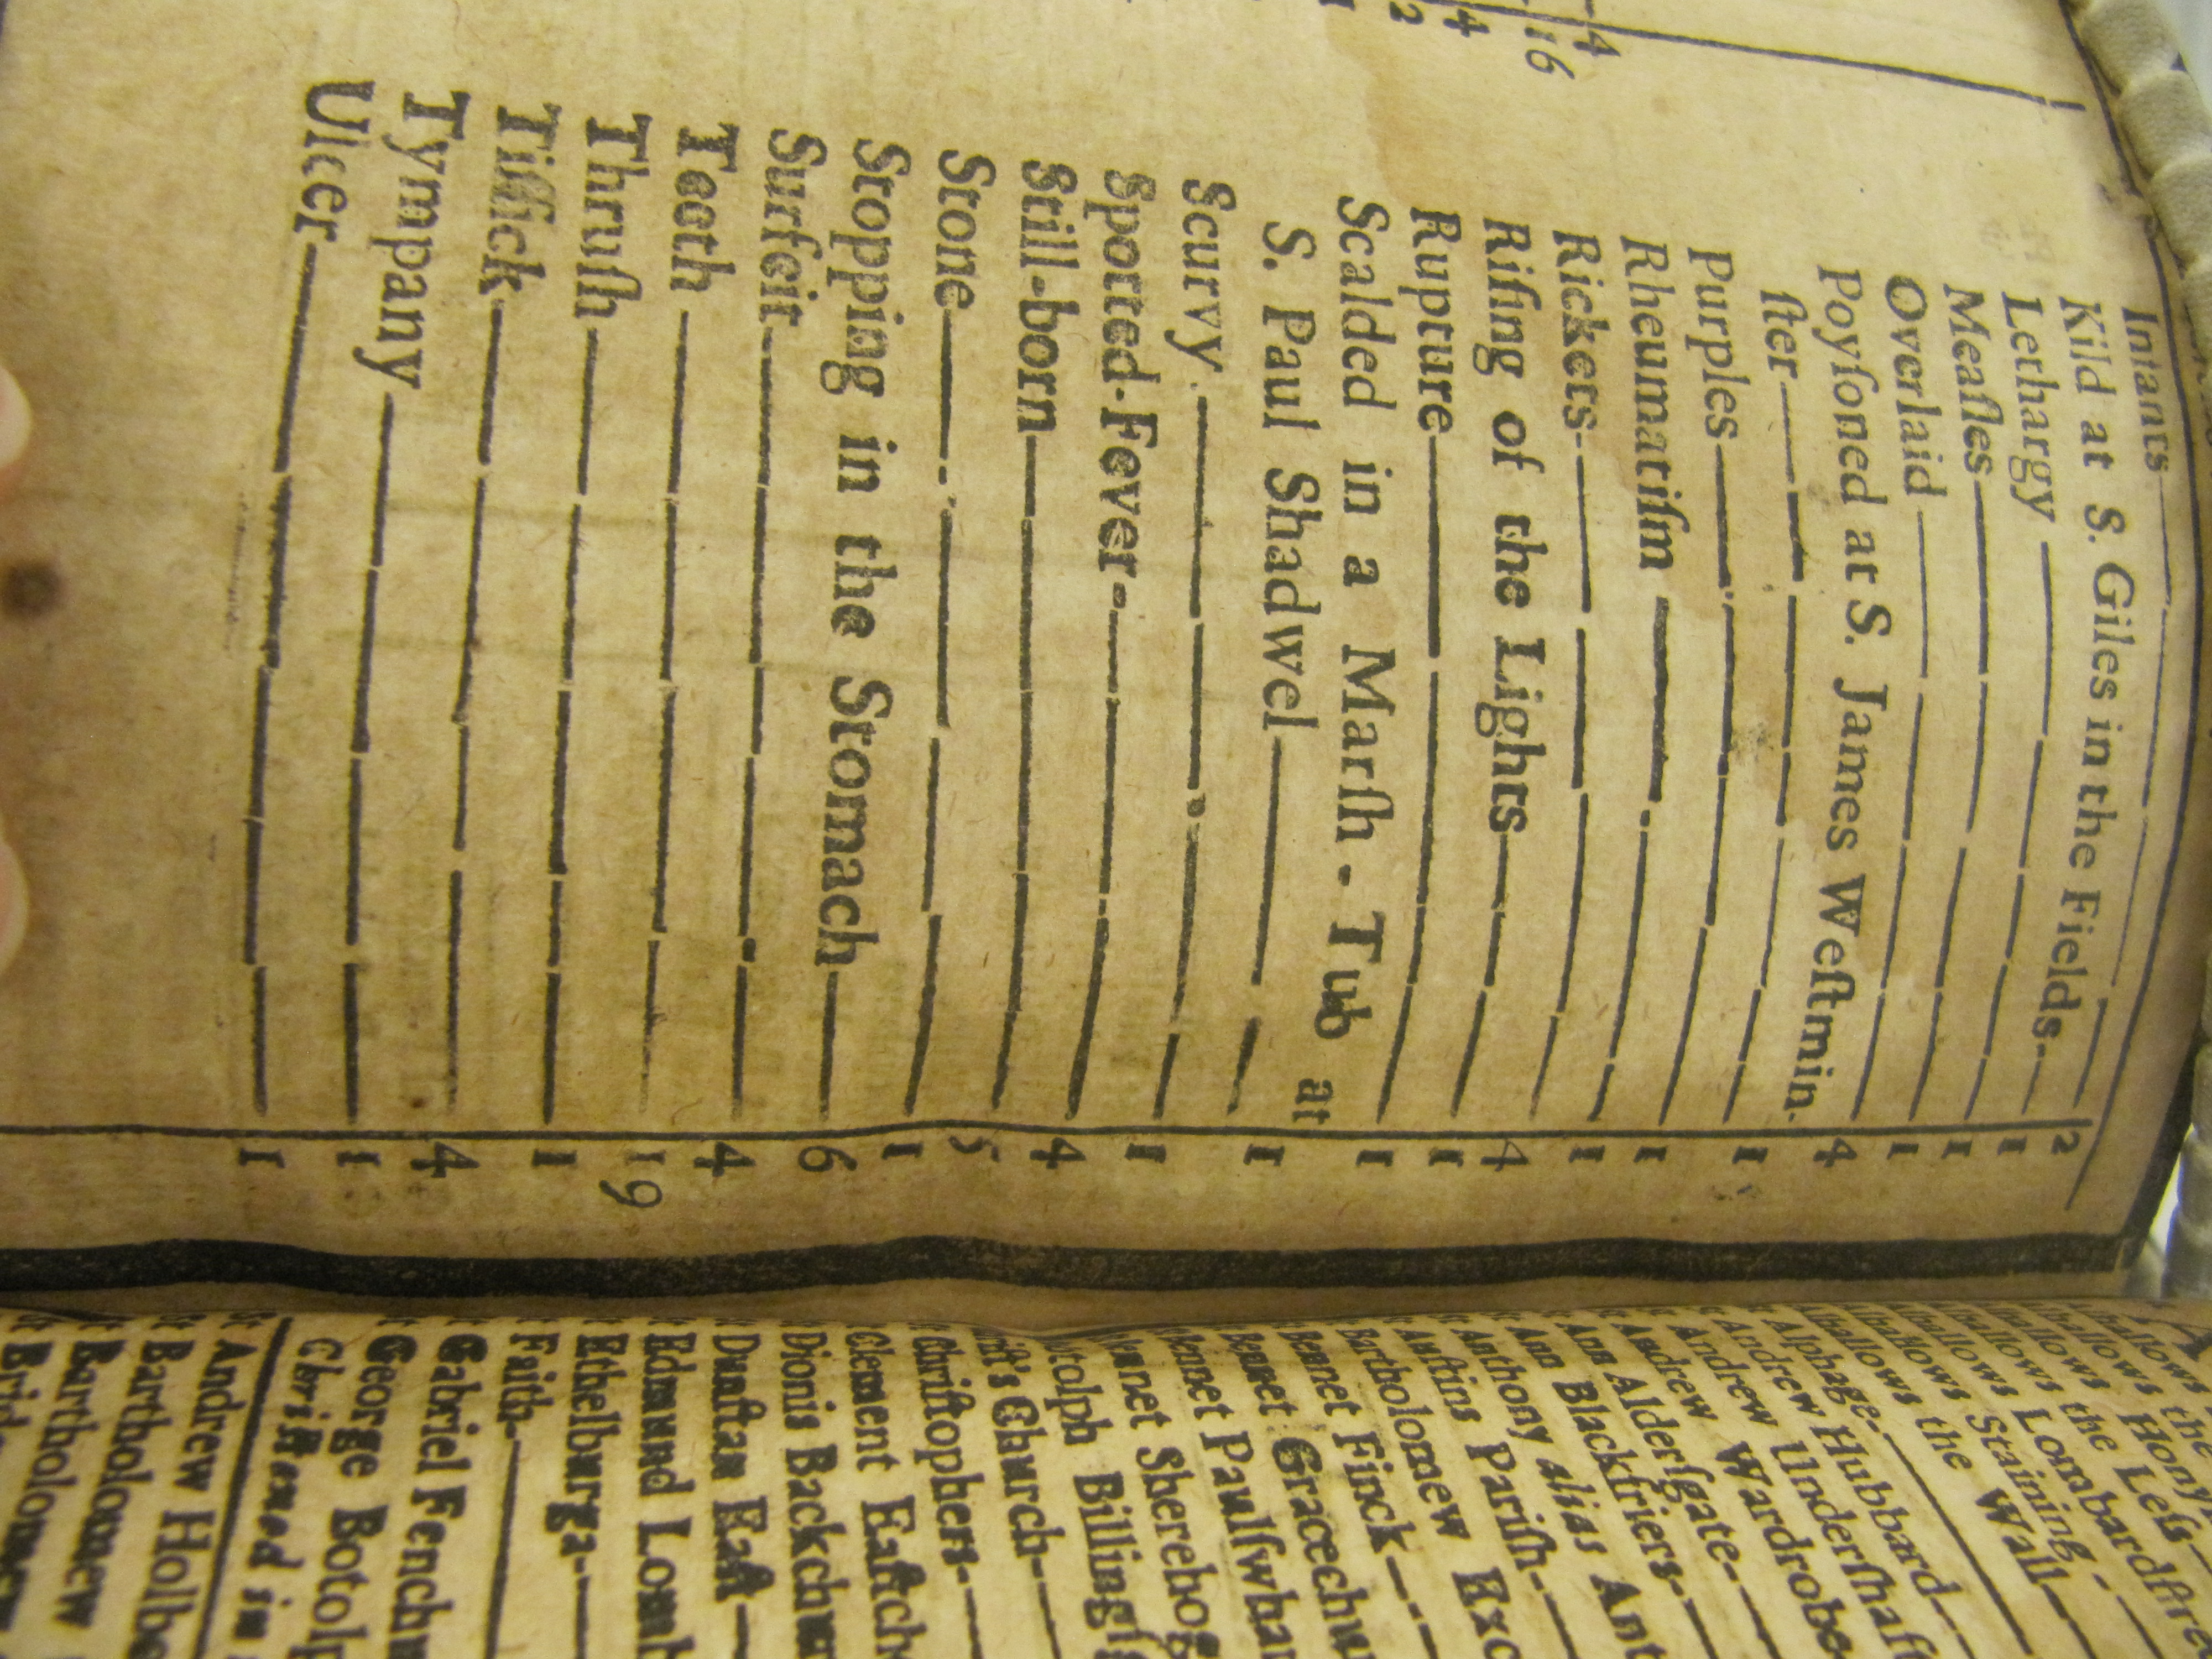 4
16
4
2
Infants 2
Kild at S. Giles in the Fields 1
Lethargy 1
Meaſles 1
Overlaid 4
Poyſoned at S. James Weſtmin-
ſter 1
Purples 1
Rheumatiſm 1
Rickets 4
Riſing of the Lights 1
Rupture 1
Scalded in a Marſh-Tub at
S. Paul Shadwel 1
Scurvy 1
Spotted-Fever 4
Still-born 5
Stone 1
Stopping in the Stomach 6
Surfeit 4
Teeth 19
Thruſh 1
Tiſſick 4
Tympany 1
Ulcer 1
the
Leſs
Lombardſtre
Staining
the Wall
Alphage
Andrew Hubbard
Andrew Underſhaft
Andrew Wardrobe
Ann Alderſgate
Ann Blackfriers
Anthony alias Ant
Auſtins Pariſh
Bartholomew Exc
Bennet Finck
Bennet Gracechu
Bennet Paulſwhar
Sherehog
Billingſ
Church
Chriſtophers
Clement Eaſtch
Dionis Backchur
Dunſtan Eaſt
Edmund Lomb
Ethelburga
Faith
Gabriel Fenchu
George Botolp
Chriſtned in
Andrew Holbo
Bartholomew
Bartholomew